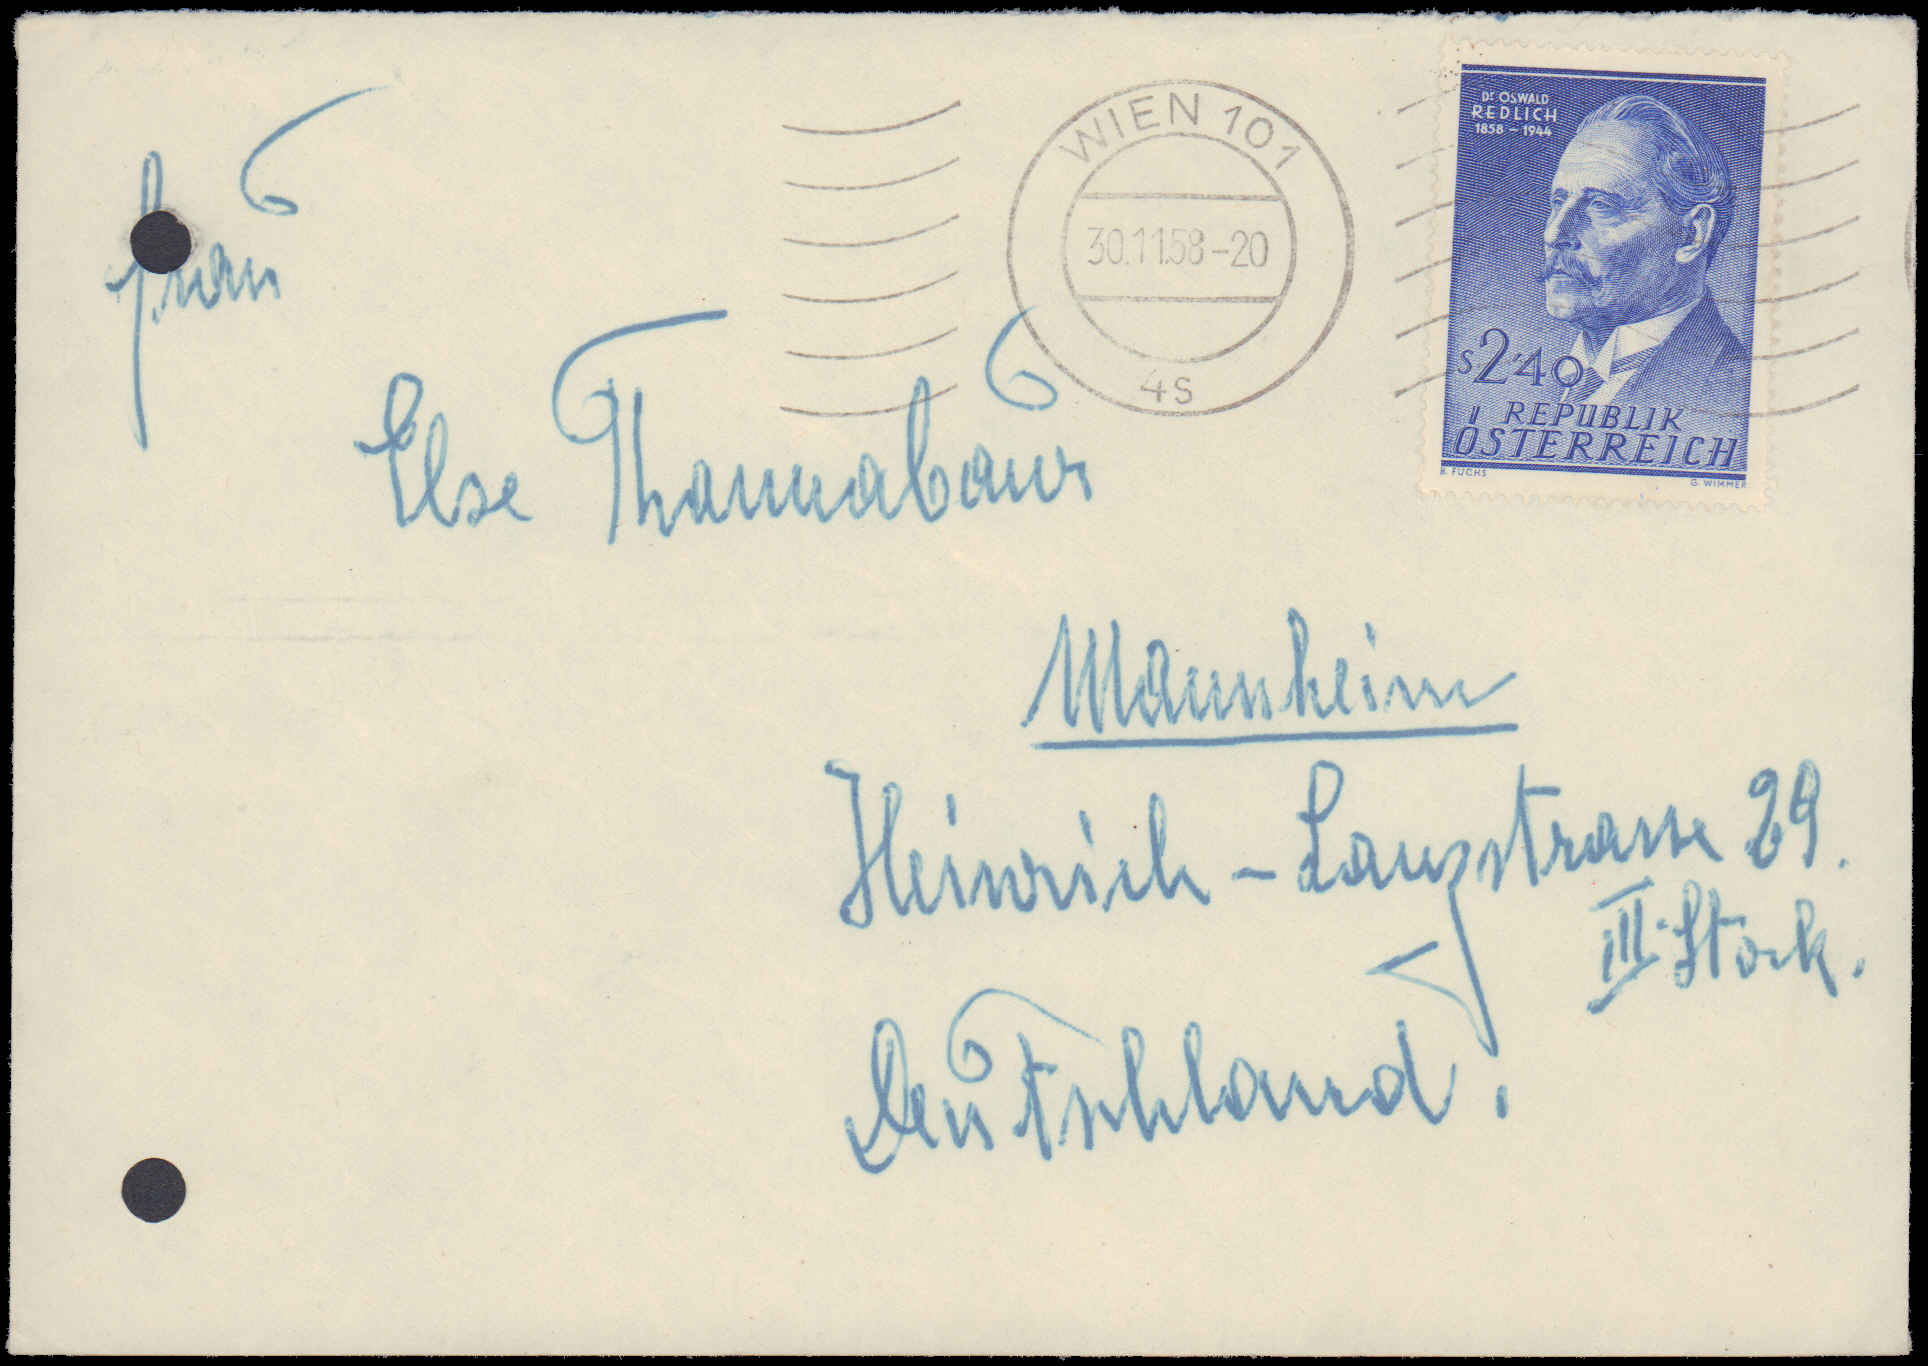 WIEN 101
30.11.58-20
4s
Dr OSWALD
REDLICH
1858 - 1944
S 2'40
REPUBLIK
ÖSTERREICH
B. FUCHS
G. WIMMER
Frau
Else Thannabaur
Mannheim
Heinrich - Lanzstrasse 29.
III. Stock.
Deutschland.